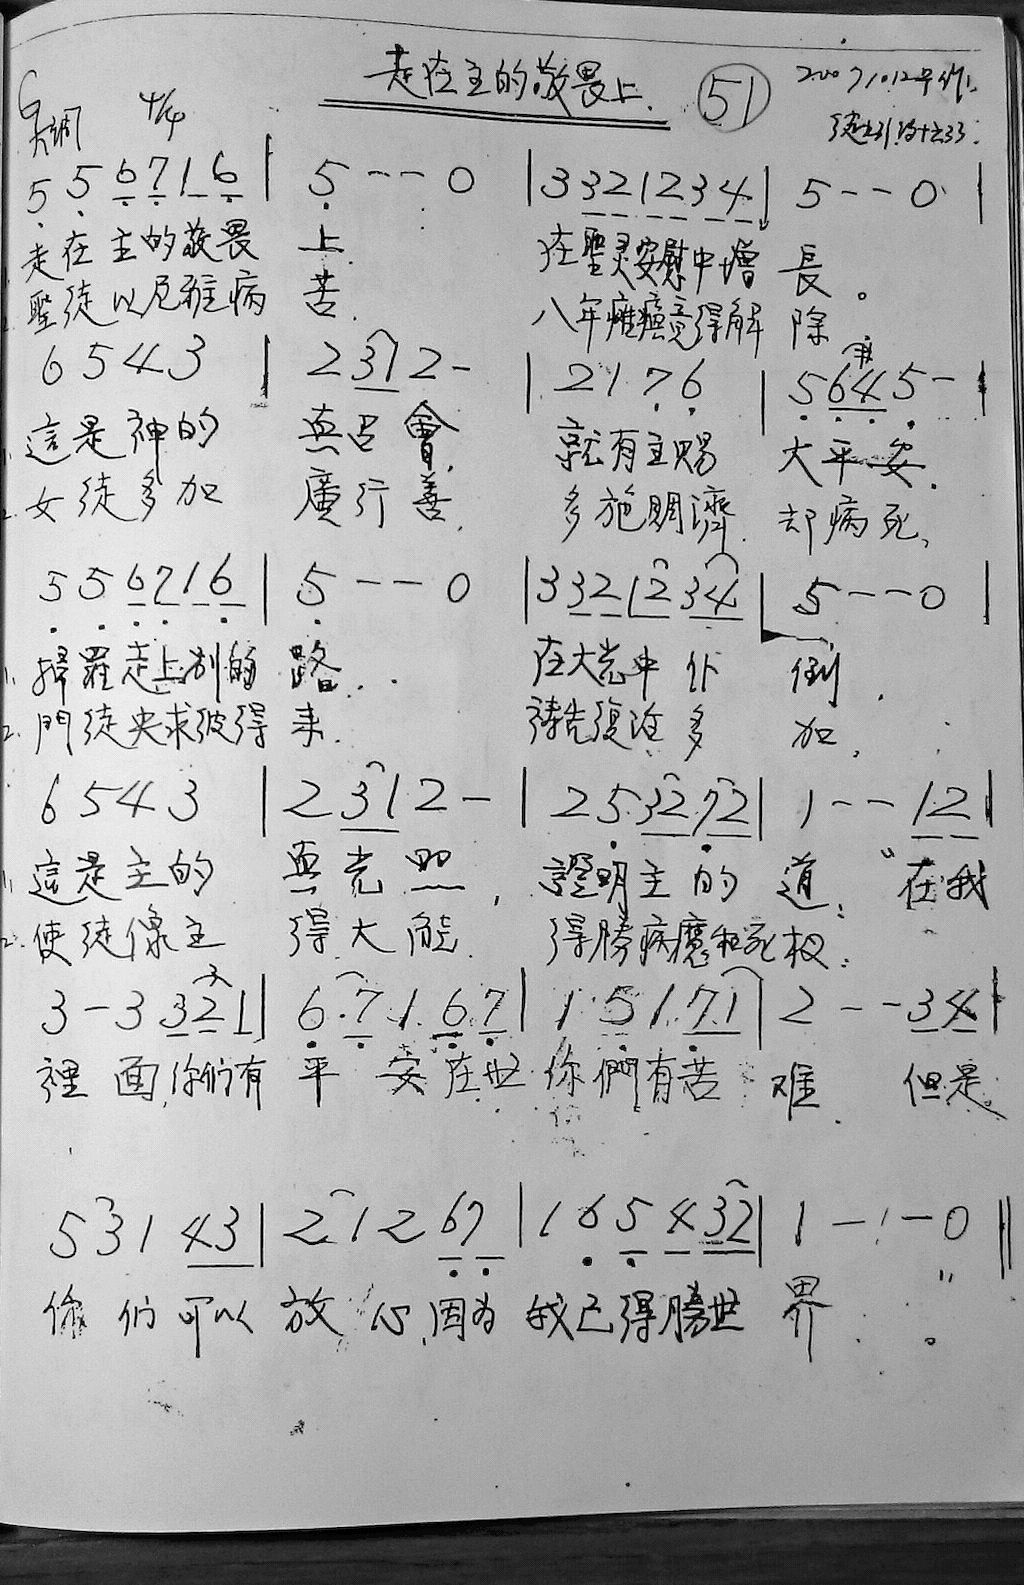 走在主的敬畏上 51 2007.10.12早作
G大調 4/4 徒
5 5 6 7 1 6 | 5 - - 0 | 3 3 2 1 2 3 4 | 5 - - 0 |
走在主的敬畏 上 在聖灵安慰中增 長。
聖徒以尼雅病 苦 八年瘫癌竟得解 除
6 5 4 3 | 2 3 1 2 - | 2 1 7 6 | 5 6 4 5 - |
1. 這是神的 真召會 就有主賜 大平安.
2. 女徒多加 廣行善. 多施賙濟 却病死、
5 5 6 7 1 6 | 5 - - 0 | 3 3 2 1 2 3 4 | 5 - - 0 |
1. 掃羅走上别的 路.. 在大光中 仆 倒.
2. 門徒央求彼得 来. 禱告復活 多 加.
6 5 4 3 | 2 3 1 2 - | 2 5. 3 2 7 2 | 1 - - 1 2 |
1. 這是主的 真光照, 證明主的 道: “在我
2. 使徒像主 得大能. 得勝病魔和死权:
3 - 3 3 2 1 | 6. 7 1. 6 7 | 1. 5 1. 7 1 | 2 - - 3 4 |
裡 面,你们有 平 安在世 你們有苦 难. 但是。
5 3 1 4 3 | 2. 1 2 6 7 | 1 6 5 4 3 2 | 1 - - 0 ‖
你 们 可以 放 心,因为 我已得勝世 界. ”。